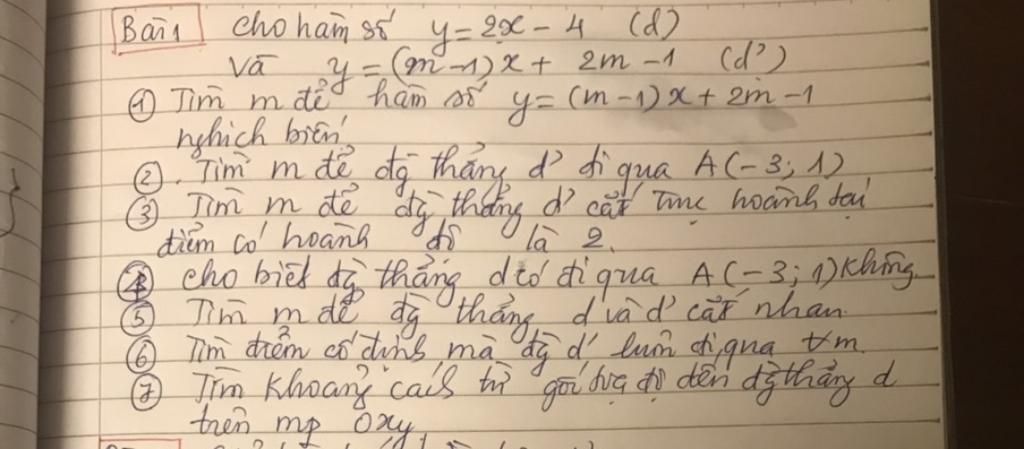 Bài 1 cho hàm số y = 2x - 4 (d)
Và y = (m-1)x + 2m - 1 (d')
① Tìm m để hàm số y = (m-1)x + 2m - 1
nghịch biến.
②. Tìm m để đg thẳng d' đi qua A(-3; 1)
③ Tìm m để đg thẳng d' cắt trục hoành tại
điểm có hoành độ là 2.
④ cho biết đg thẳng d có đi qua A(-3; 1) không
⑤ Tìm m để đg thẳng d và d' cắt nhau.
⑥ Tìm điểm cố định mà đg d' luôn đi qua ∀m.
⑦ Tìm khoảng cách từ gốc tọa độ đến đg thẳng d
trên mp Oxy